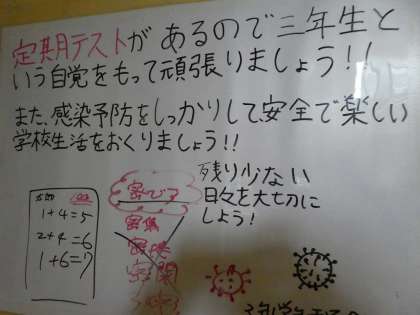 定期テストがあるので三年生と
いう自覚をもって頑張りましょう!!
また、感染予防をしっかりして安全で楽しい
学校生活をおくりましょう!!
残り少ない
日々を大切に
しよう!
1+4=5
2+4=6
1+6=7
密です
密集
密接
密閉